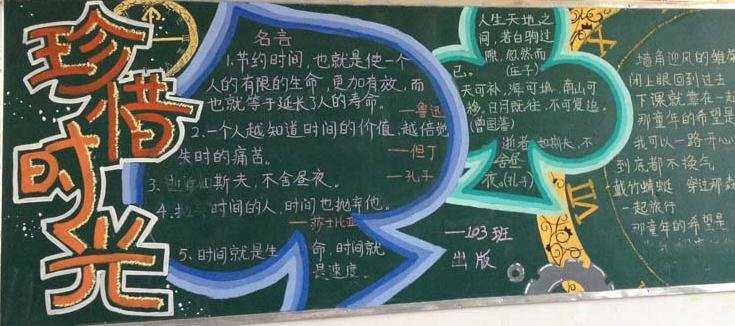 珍惜时光
名言
1.节约时间,也就是使一个
人的有限的生命,更加有效,而
也就等于延长了人的寿命。
—鲁迅
2.一个人越知道时间的价值,越倍觉
失时的痛苦。
—但丁
3.逝者如斯夫,不舍昼夜。
—孔子
4.时间的人,时间也抛弃他。
—莎士比亚
5、时间就是生命,时间就
是速度。
人生天地之
间,若白驹过
隙,忽然而
已。(庄子)
天可补,海可填,南山可
移,日月既往,不可复追。
(曾国藩)
逝者如斯夫,不
舍昼
夜。(孔子)
—103班
出版
VII
墙角迎风的雏菊
闭上眼回到过去
下课就靠在一起
那童年的希望是
我可以一路开心
到底都不换气
戴竹蜻蜓 穿过那森
一起旅行
那童年的希望是